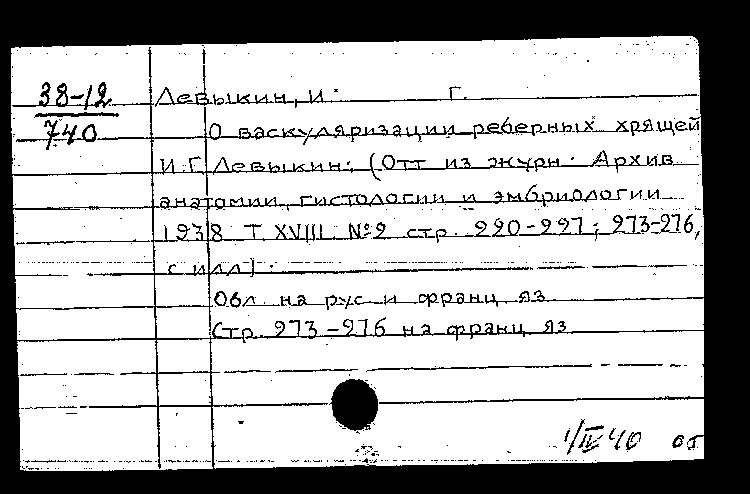 38-12
740
Левыкин, И. Г.
О васкуляризации реберных хрящей
И.Г. Левыкин. (Отт из журн. Архив
анатомии, гистологии и эмбриологии
1938 Т. XVIII. №2 стр. 220-227; 273-276,
с илл).
Обл. на рус и франц. яз
Стр. 273-276 на франц яз
1/IV 40 об